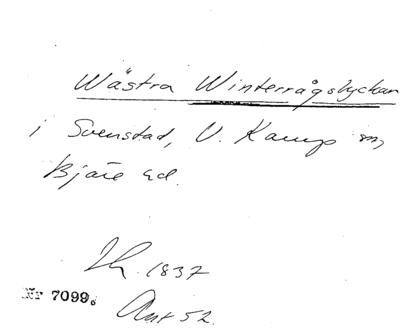 Wästra Winterrågslyckan
i Svenstad, V. Karup sn,
Bjäre hd.
Lh. 1837
Nr 7099.
Ant 52.